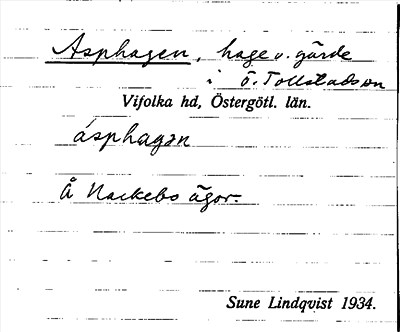 Asphagen, hage o. gärde
i ö. Tollstad sn
Vifolka hd, Östergötl. län.
ásphagən
Å Nackebo ägor.
Sune Lindqvist 1934.